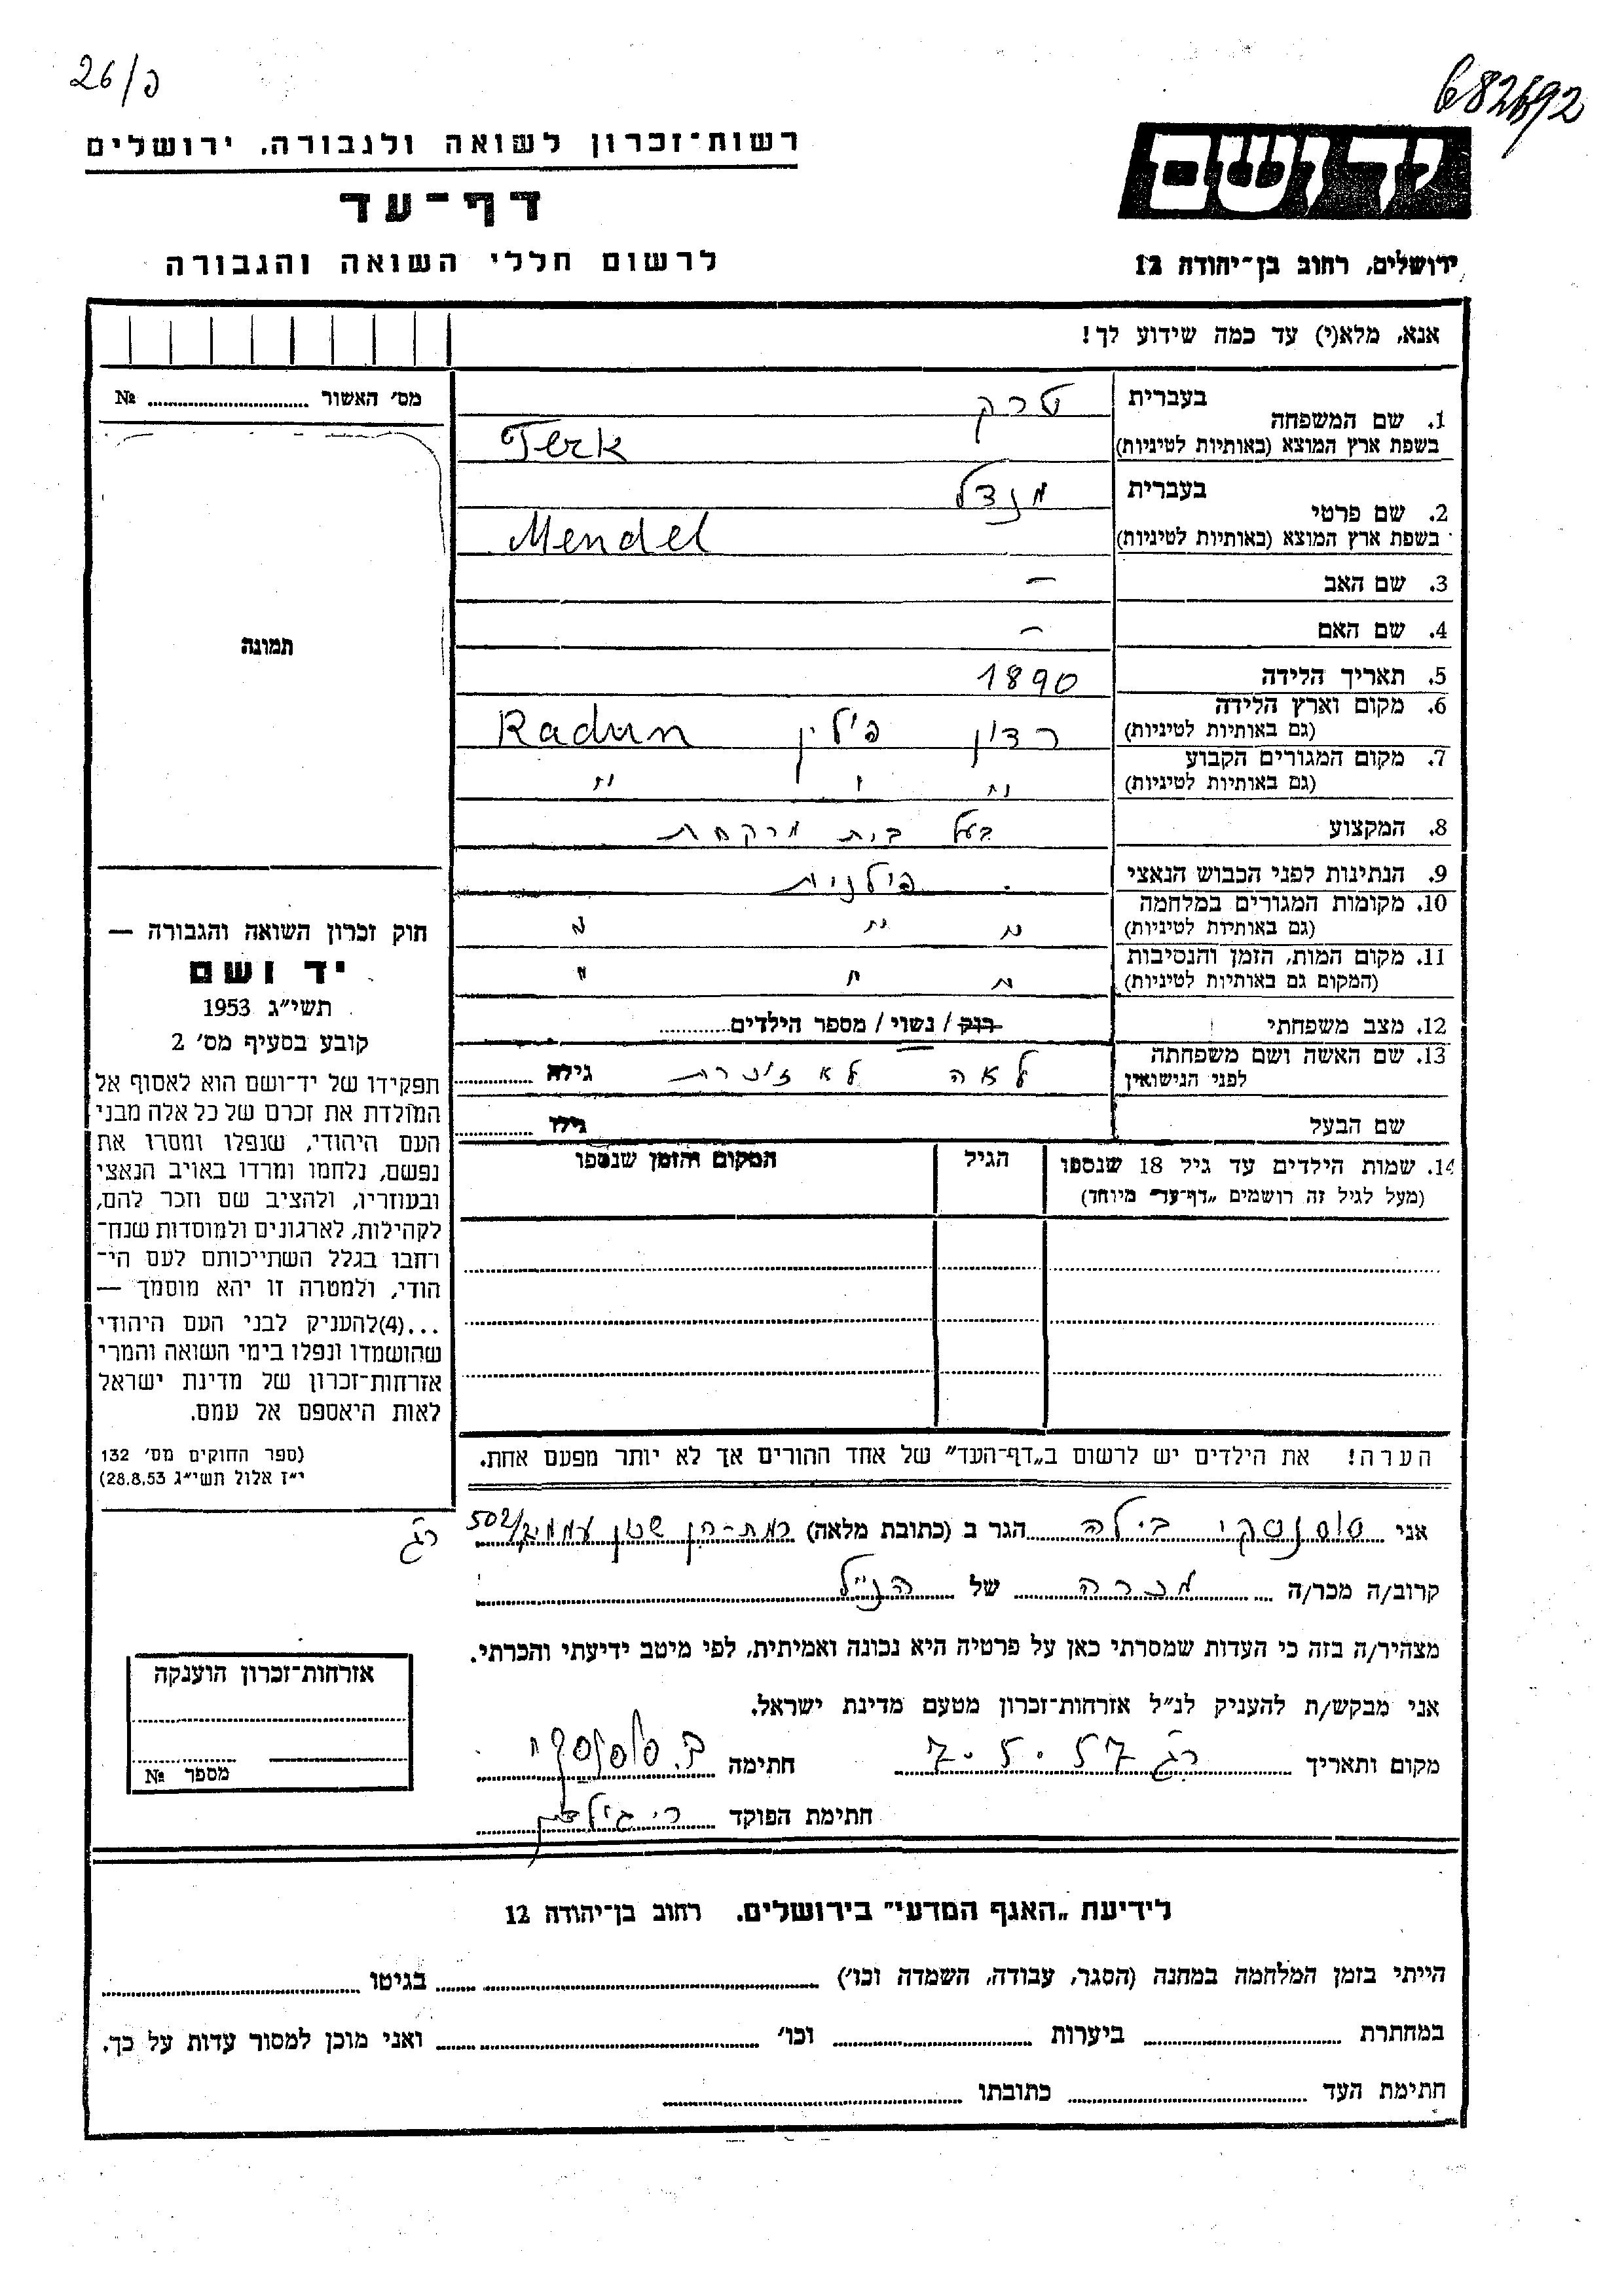 26/פ
682692
רשות־זכרון לשואה ולגבורה, ירושלים
ידושם
דף־עד
לרשום חללי השואה והגבורה
ירושלים, רחוב בן־יהודה 12
אנא, מלא(י) עד כמה שידוע לך!
מס׳ האשור № 
תמונה
1. שם המשפחה בעברית טרק
בשפת ארץ המוצא (באותיות לטיניות) Terk
2. שם פרטי בעברית מנדל
בשפת ארץ המוצא (באותיות לטיניות) Mendel
3. שם האב –
4. שם האם –
5. תאריך הלידה 1890
6. מקום וארץ הלידה רדון פולין Radun
(גם באותיות לטיניות)
7. מקום המגורים הקבוע " " "
(גם באותיות לטיניות)
8. המקצוע בעל בית מרקחת
9. הנתינות לפני הכבוש הנאצי פולנית
10. מקומות המגורים במלחמה " " "
(גם באותיות לטיניות)
11. מקום המות, הזמן והנסיבות " " "
(המקום גם באותיות לטיניות)
12. מצב משפחתי רוק / נשוי / מספר הילדים
13. שם האשה ושם משפחתה לאה גילה
לפני הנישואין
שם הבעל גילו
14. שמות הילדים עד גיל 18 שנספו הגיל המקום והזמן שנספו
(מעל לגיל זה רושמים „דף־עד״ מיוחד)
הערה! את הילדים יש לרשום ב„דף־העד״ של אחד ההורים אך לא יותר מפעם אחת.
חוק זכרון השואה והגבורה —
יד ושם
תשי״ג 1953
קובע בסעיף מס׳ 2
תפקידו של יד־ושם הוא לאסוף אל
המולדת את זכרם של כל אלה מבני
העם היהודי, שנפלו ומסרו את
נפשם, נלחמו ומרדו באויב הנאצי
ובעוזריו, ולהציב שם וזכר להם,
לקהילות, לארגונים ולמוסדות שנח־
רחבו בגלל השתייכותם לעם הי־
הודי, ולמטרה זו יהא מוסמך —
...(4)להעניק לבני העם היהודי
שהושמדו ונפלו בימי השואה והמרי
אזרחות־זכרון של מדינת ישראל
לאות היאספם אל עמם.
(ספר החוקים מס׳ 132
י״ז אלול תשי״ג 28.8.53)
אני סוסנסקי בילה הגר ב (כתובת מלאה) רמת־חן שכון עממי 502/
רג
קרוב/ה מכר/ה מכרה של הנ״ל
מצהיר/ה בזה כי העדות שמסרתי כאן על פרטיה היא נכונה ואמיתית, לפי מיטב ידיעתי והכרתי.
אני מבקש/ת להעניק לנ״ל אזרחות־זכרון מטעם מדינת ישראל.
מקום ותאריך רג 7.5.57 חתימה ב. סוסנסקי
חתימת הפוקד
אזרחות־זכרון הוענקה
מספר №
לידיעת „האגף המדעי״ בירושלים, רחוב בן־יהודה 12
הייתי בזמן המלחמה במחנה (הסגר, עבודה, השמדה וכו׳) בגיטו
במחתרת ביערות וכו׳ ואני מוכן למסור עדות על כך.
חתימת העד כתובתו